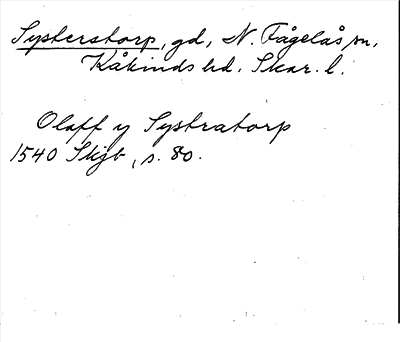 Systerstorp, gd, N. Fågelås sn,
Kåkinds hd. Skar. l.
Olaff y Systratorp
1540 Skjb, s. 80.